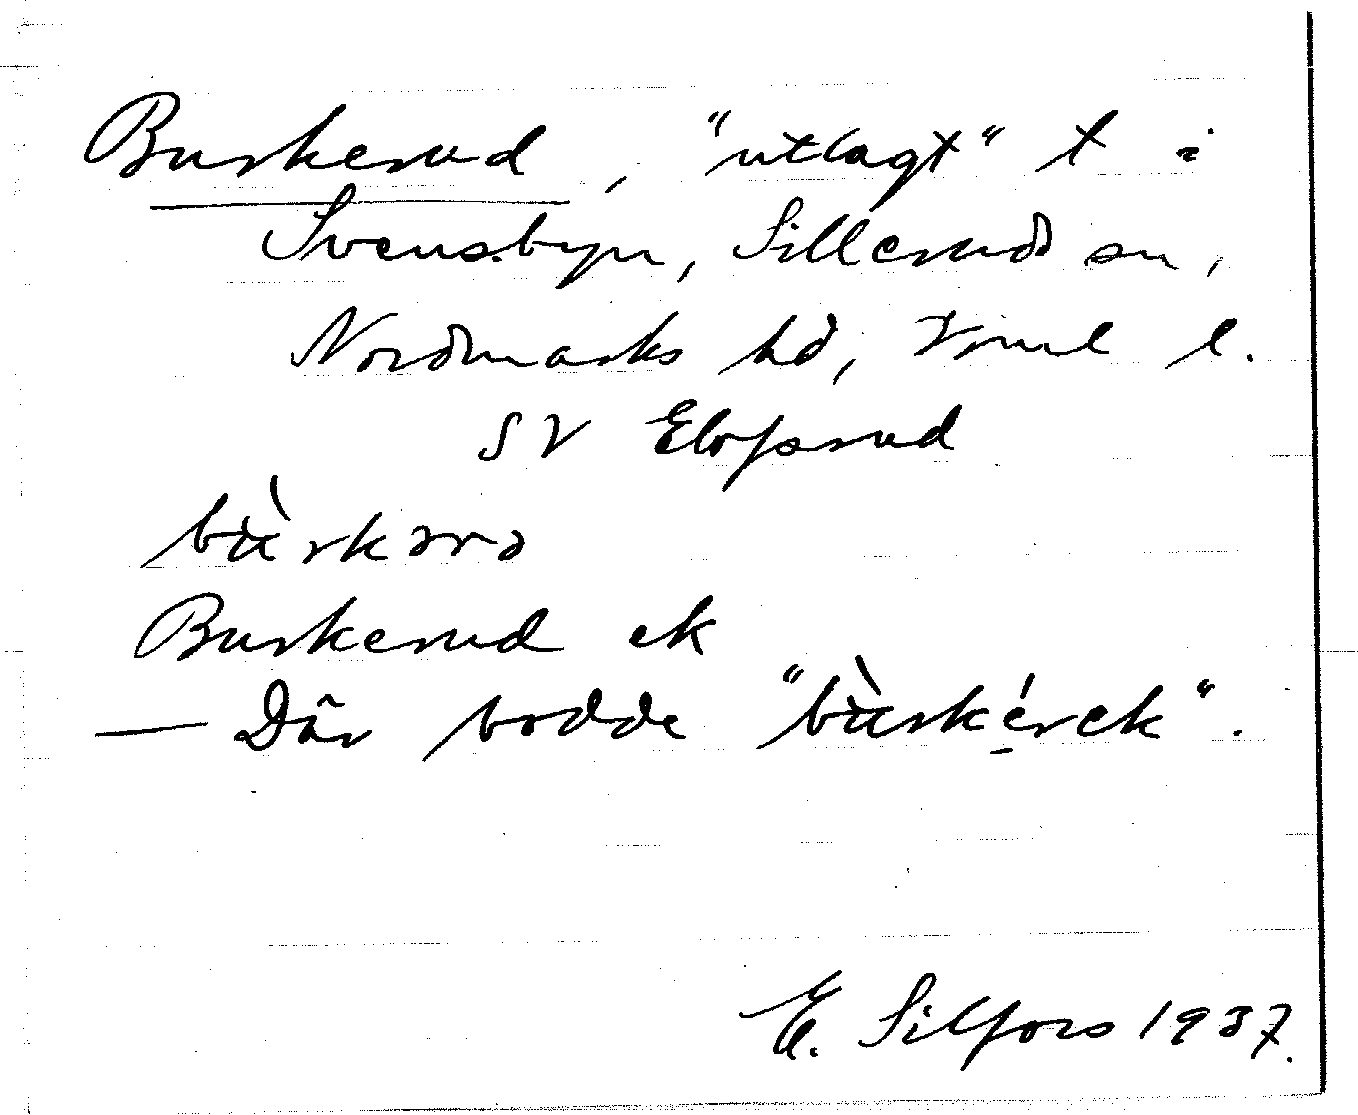 Burkerud, "utlagt" t i
Svensbyn, Sillerud sn,
Nordmarks hd, Vrml l.
SV Elofsrud
bùrkərə
Burkerud ek
— Där bodde "bùrkérek".
E. Silfors 1937.